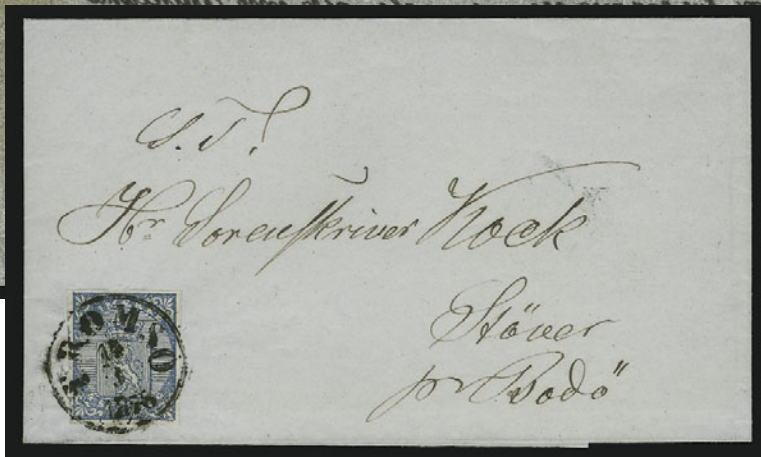 S. T.
Hr Sorenskriver Kock
Støver
pr Bodö
TROMSO